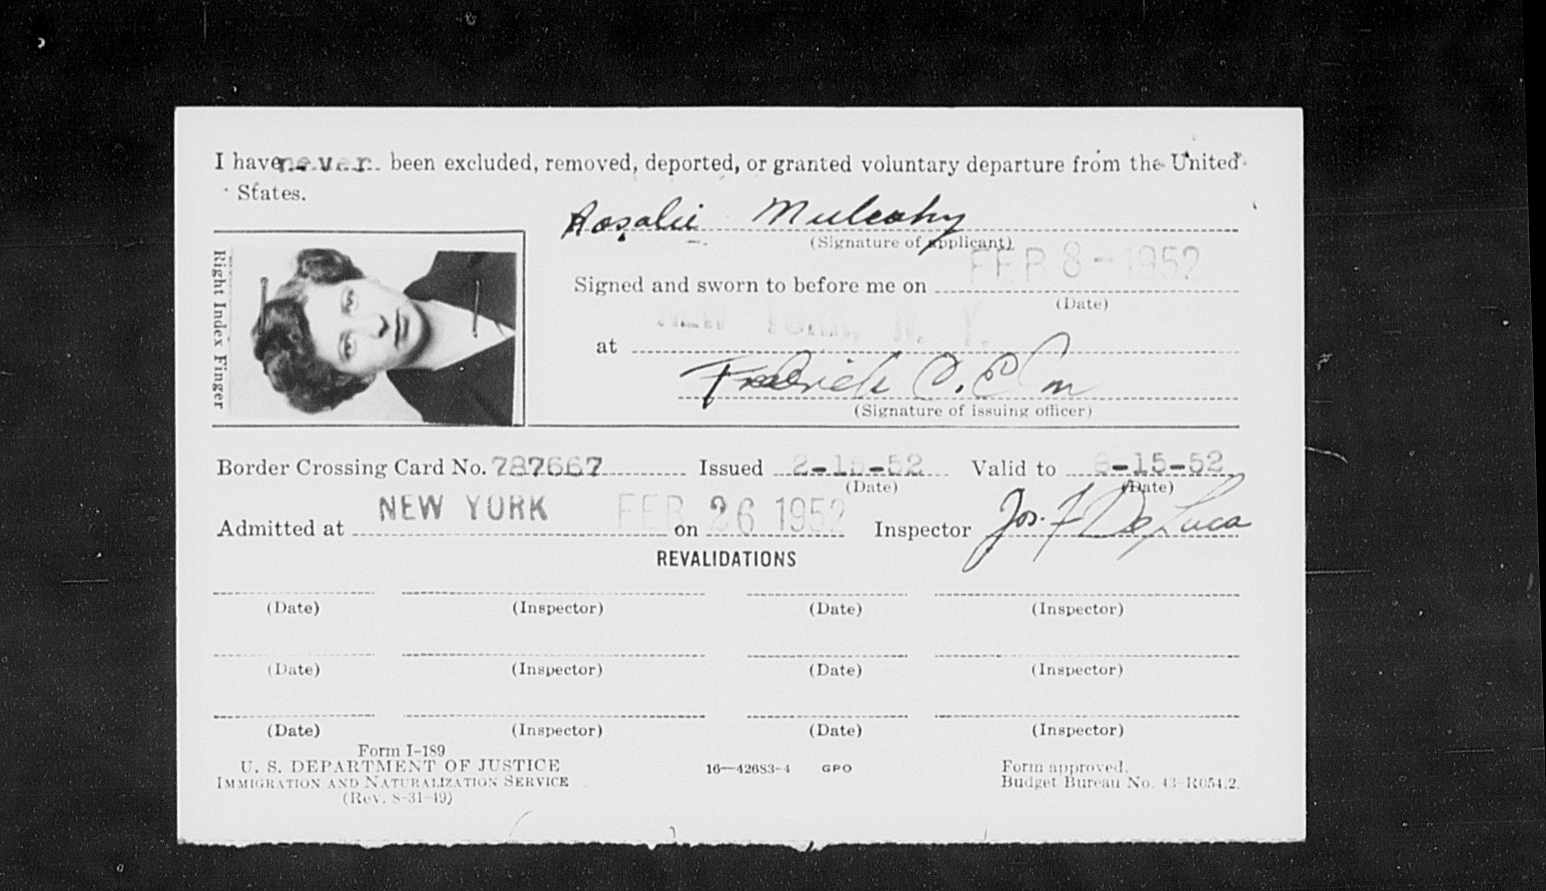 I have never been excluded, removed, deported, or granted voluntary departure from the United
States.
Rosalie Mulcahy
(Signature of applicant)
Right Index Finger
FEB 8 - 1952
Signed and sworn to before me on
(Date)
NEW YORK, N. Y.
at
Fredrick O.
(Signature of issuing officer)
Border Crossing Card No. 787667 Issued 2-15-52 Valid to 8-15-52
(Date) (Date)
Admitted at NEW YORK on FEB 26 1952 Inspector Jos. F De Luca
REVALIDATIONS
(Date) (Inspector) (Date) (Inspector)
(Date) (Inspector) (Date) (Inspector)
(Date) (Inspector) (Date) (Inspector)
Form I-189
U. S. DEPARTMENT OF JUSTICE 16—42683-4 GPO Form approved.
IMMIGRATION AND NATURALIZATION SERVICE Budget Bureau No. 43-R054.2.
(Rev. 8-31-49)